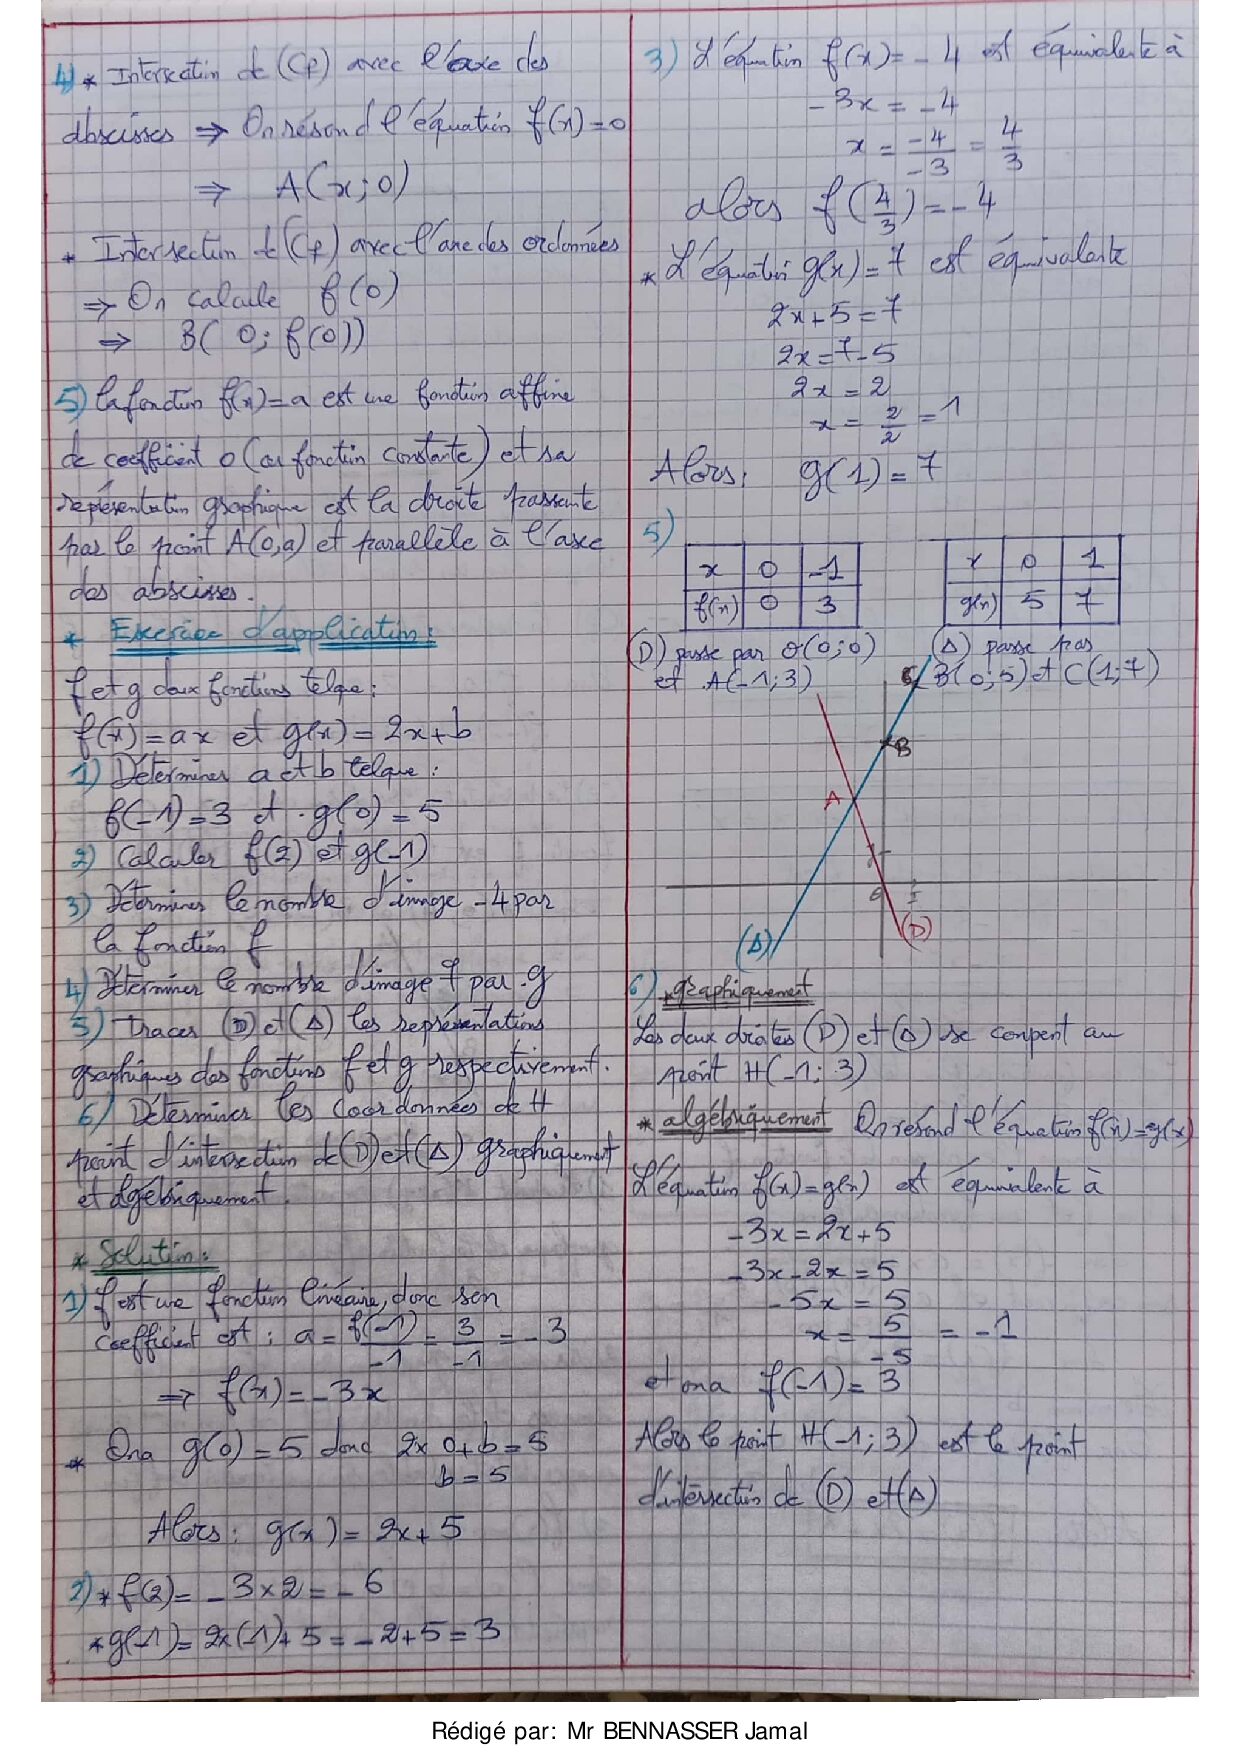 4) * Intersection de (Cf) avec l'axe des
abscisses ⇒ On résond l'équation f(x)=0
⇒ A(x;0)
* Intersection de (Cf) avec l'axe des ordonnées
⇒ On calcule f(0)
⇒ B(0; f(0))
5) la fonction f(x)=a est une fonction affine
de coefficient 0 (ou fonction constante) et sa
représentation graphique est la droite passante
par le point A(0,a) et parallèle à l'axe
des abscisses.
* Exercice d'application:
f et g deux fonctions telque:
f(x)=ax et g(x)=2x+b
1) Déterminer a et b telque:
f(-1)=3 et g(0)=5
2) Calculer f(2) et g(-1)
3) Déterminer le nombre d'image -4 par
la fonction f
4) Déterminer le nombre d'image 7 par g
5) Tracer (D) et (Δ) les représentations
graphiques des fonctions f et g respectivement.
6) Déterminer les coordonnées de H
point d'intersection de (D) et (Δ) graphiquement
et algébriquement.
* Solution:
1) f est une fonction linéaire, donc son
coefficient est: a = f(-1)/-1 = 3/-1 = -3
⇒ f(x)=-3x
* On a g(0)=5 donc 2×0+b=5
b=5
Alors: g(x)=2x+5
2) * f(2)=-3×2=-6
* g(-1)=2×(-1)+5=-2+5=3
3) L'équation f(x)=-4 est équivalente à
-3x=-4
x = -4/-3 = 4/3
alors f(4/3)=-4
* L'équation g(x)=7 est équivalente
2x+5=7
2x=7-5
2x=2
x = 2/2 = 1
Alors: g(1)=7
5)
x 0 -1
f(x) 0 3
x 0 1
g(x) 5 7
(D) passe par O(0;0)
et A(-1;3)
(Δ) passe par
B(0;5) et C(1;7)
C
B
A
1
0 1
(Δ) (D)
6) * graphiquement
Les deux droites (D) et (Δ) se coupent au
point H(-1; 3)
* algébriquement On résond l'équation f(x)=g(x)
L'équation f(x)=g(x) est équivalente à
-3x=2x+5
-3x-2x=5
-5x=5
x = 5/-5 = -1
et on a f(-1)=3
Alors le point H(-1;3) est le point
d'intersection de (D) et (Δ)
Rédigé par: Mr BENNASSER Jamal